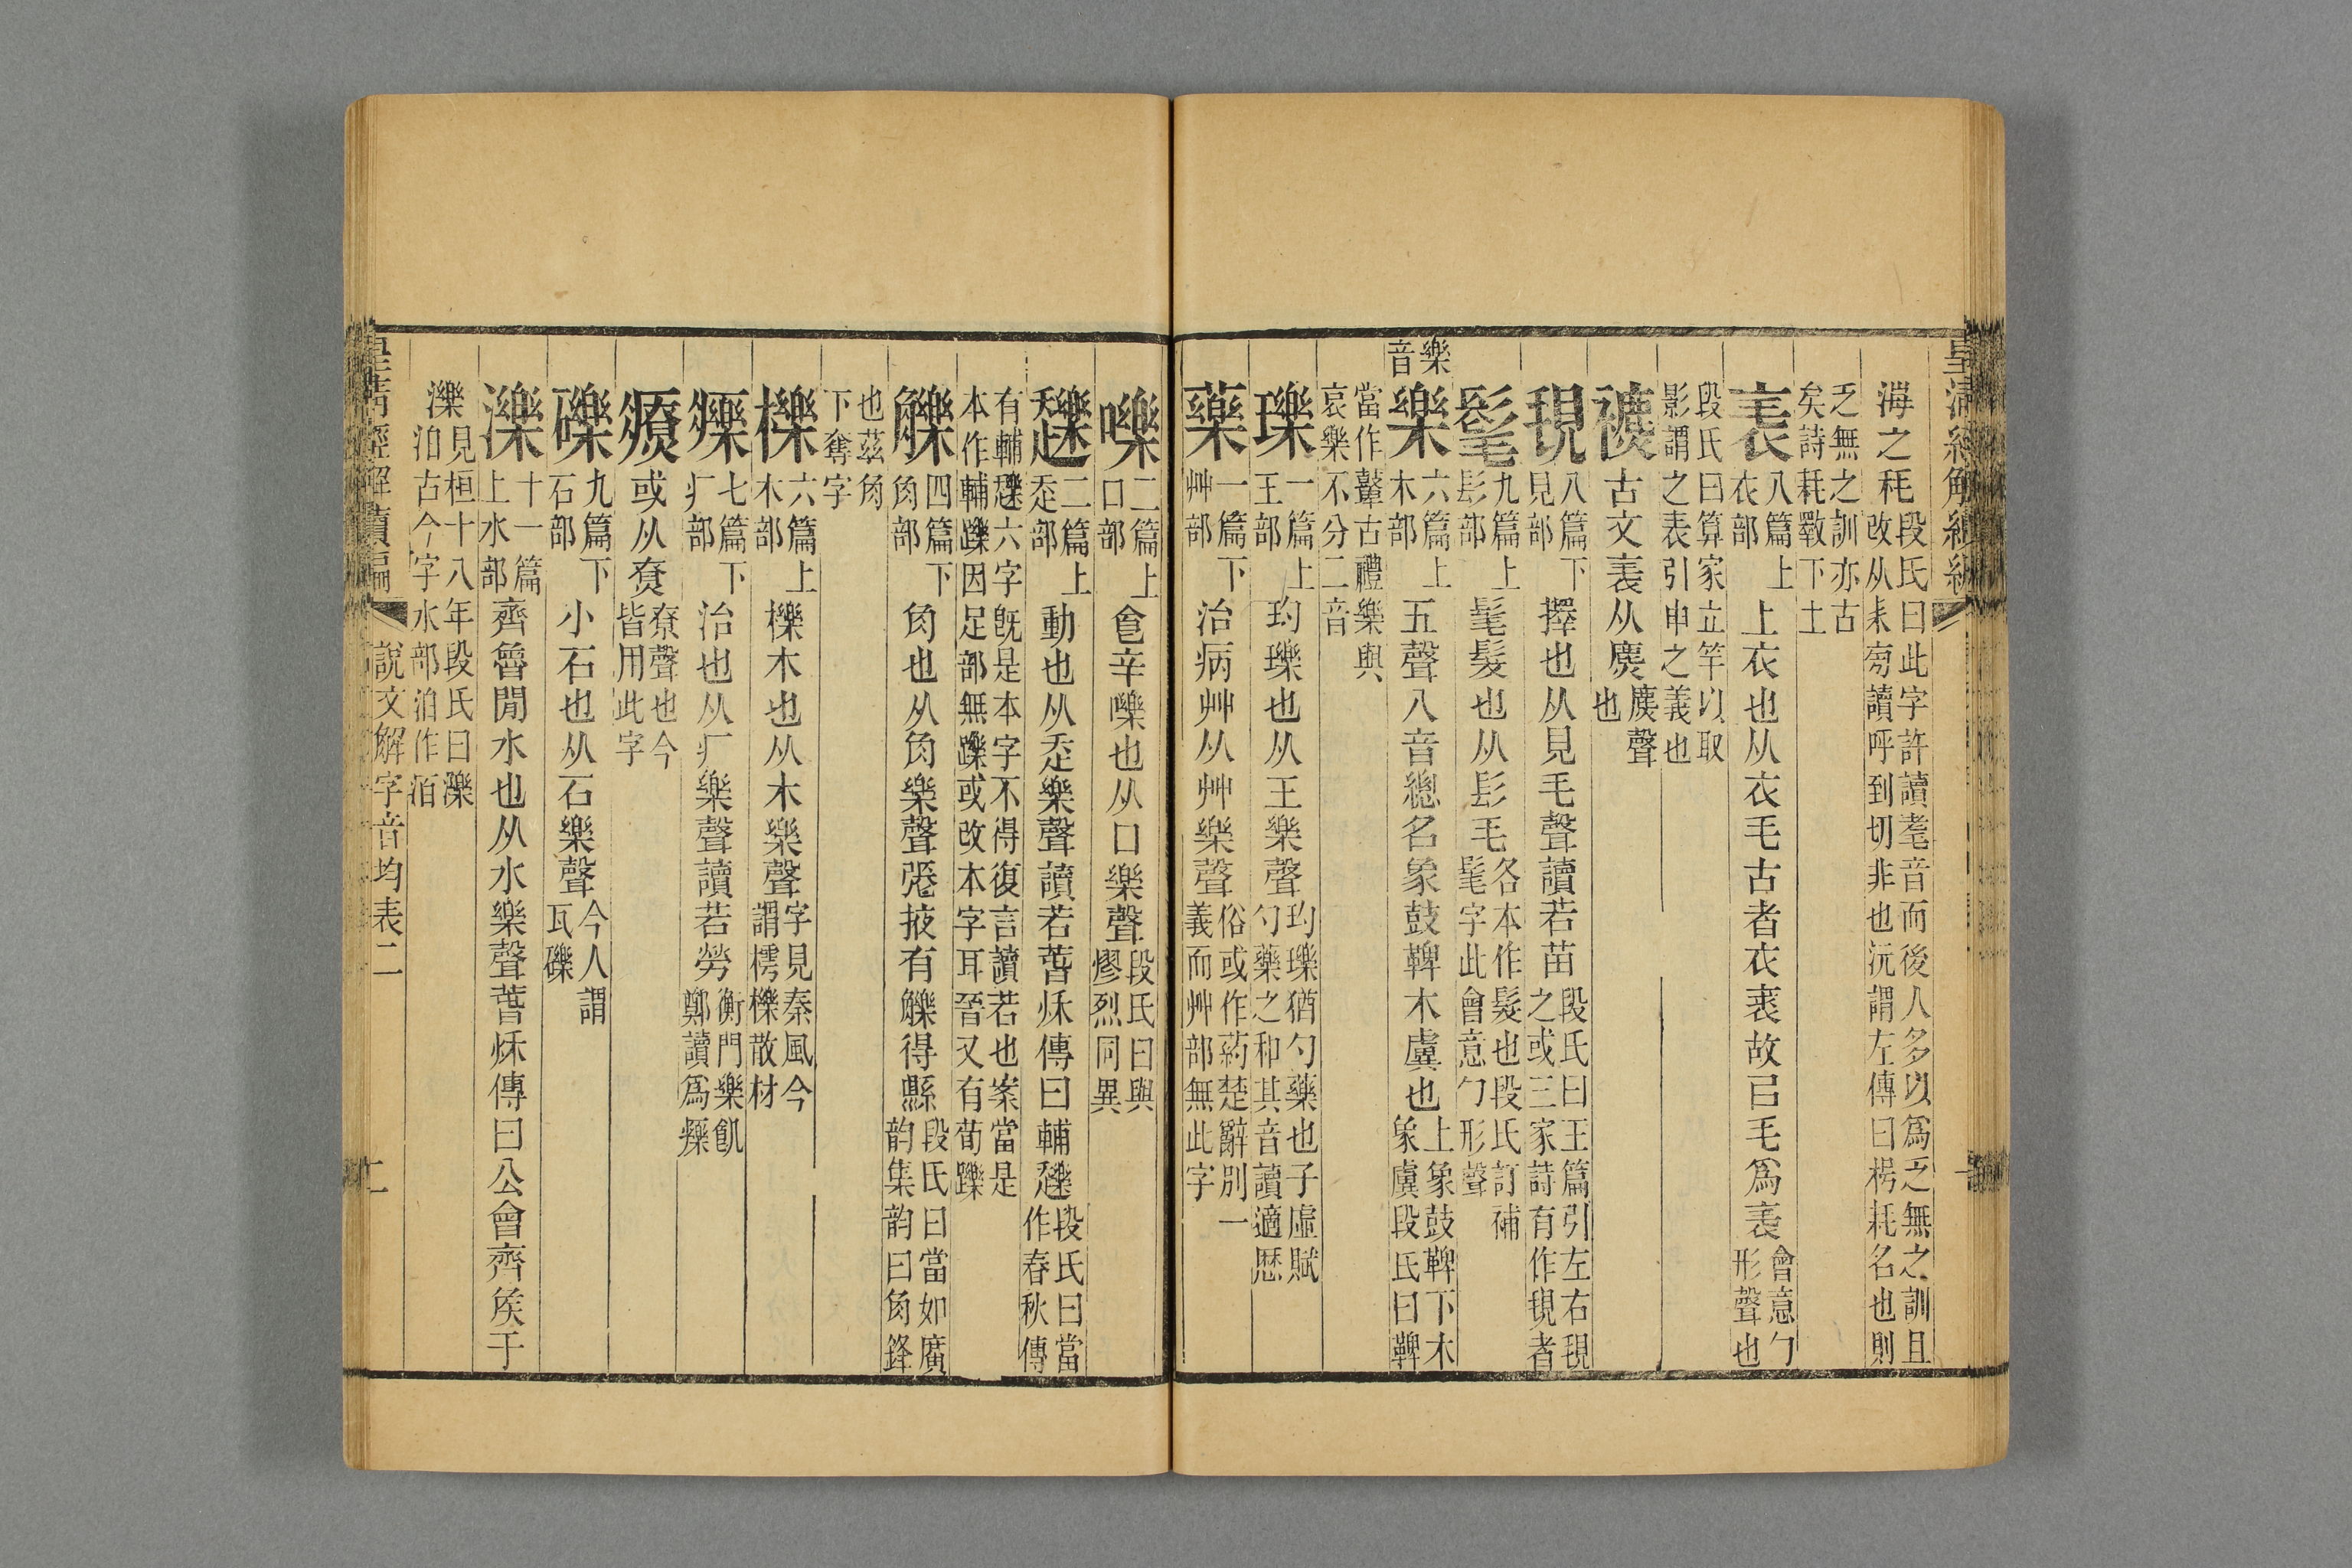 皇清經解續編
海之秏段氏曰此字許讀耄音而後人多以爲乏無之訓且改从耒旁讀呼到切非也沅謂左傳曰楞耗名也則
乏無之訓亦古矣詩耗斁下土
表八篇上衣部上衣也从衣毛古者衣裘故㠯毛爲表會意勹形聲也
段氏曰算家立竿以取影謂之表引申之義也
𧞤古文表从麃麃聲也
覒八篇下見部擇也从見毛聲讀若苗段氏曰玉篇引左右覒之或三家詩有作覒者
髦九篇上髟部髦髮也从髟毛各本作髮也段氏訂補髦字此會意勹形聲
樂音
樂六篇上木部五聲八音總名象鼓鞞木虡也上象鼓鞞下木象虡段氏曰鞞
當作鼙古禮樂與哀樂不分二音
瓅一篇上王部玓瓅也从王樂聲玓瓅猶勺藥也子虛賦勺藥之和其音讀適歷
藥一篇下艸部治病艸从艸樂聲俗或作葯楚辭別一義而艸部無此字
嚛二篇上口部食辛嚛也从口樂聲段氏曰與熮烈同異
𧾷二篇上辵部動也从辵樂聲讀若春秋傳曰輔段氏曰當作春秋傳
有輔六字旣是本字不得復言讀若也案當是本作輔躒因足部無躒或改本字耳晉又有荀躒
觻四篇下角部角也从角樂聲張掖有觻得縣段氏曰當如廣韵集韵曰角鋒
也茲角下奪字
櫟六篇上木部櫟木也从木樂聲字見秦風今謂樗櫟散材
𤻲七篇下疒部治也从疒樂聲讀若勞衡門樂飢鄭讀爲𤻲
療或从尞尞聲也今皆用此字
礫九篇下石部小石也从石樂聲今人謂瓦礫
濼十一篇上水部齊魯閒水也从水樂聲春秋傳曰公會齊矦于
濼見桓十八年段氏曰濼泊古今字水部泊作洦
皇淸經解續編 說文解字音均表二 二